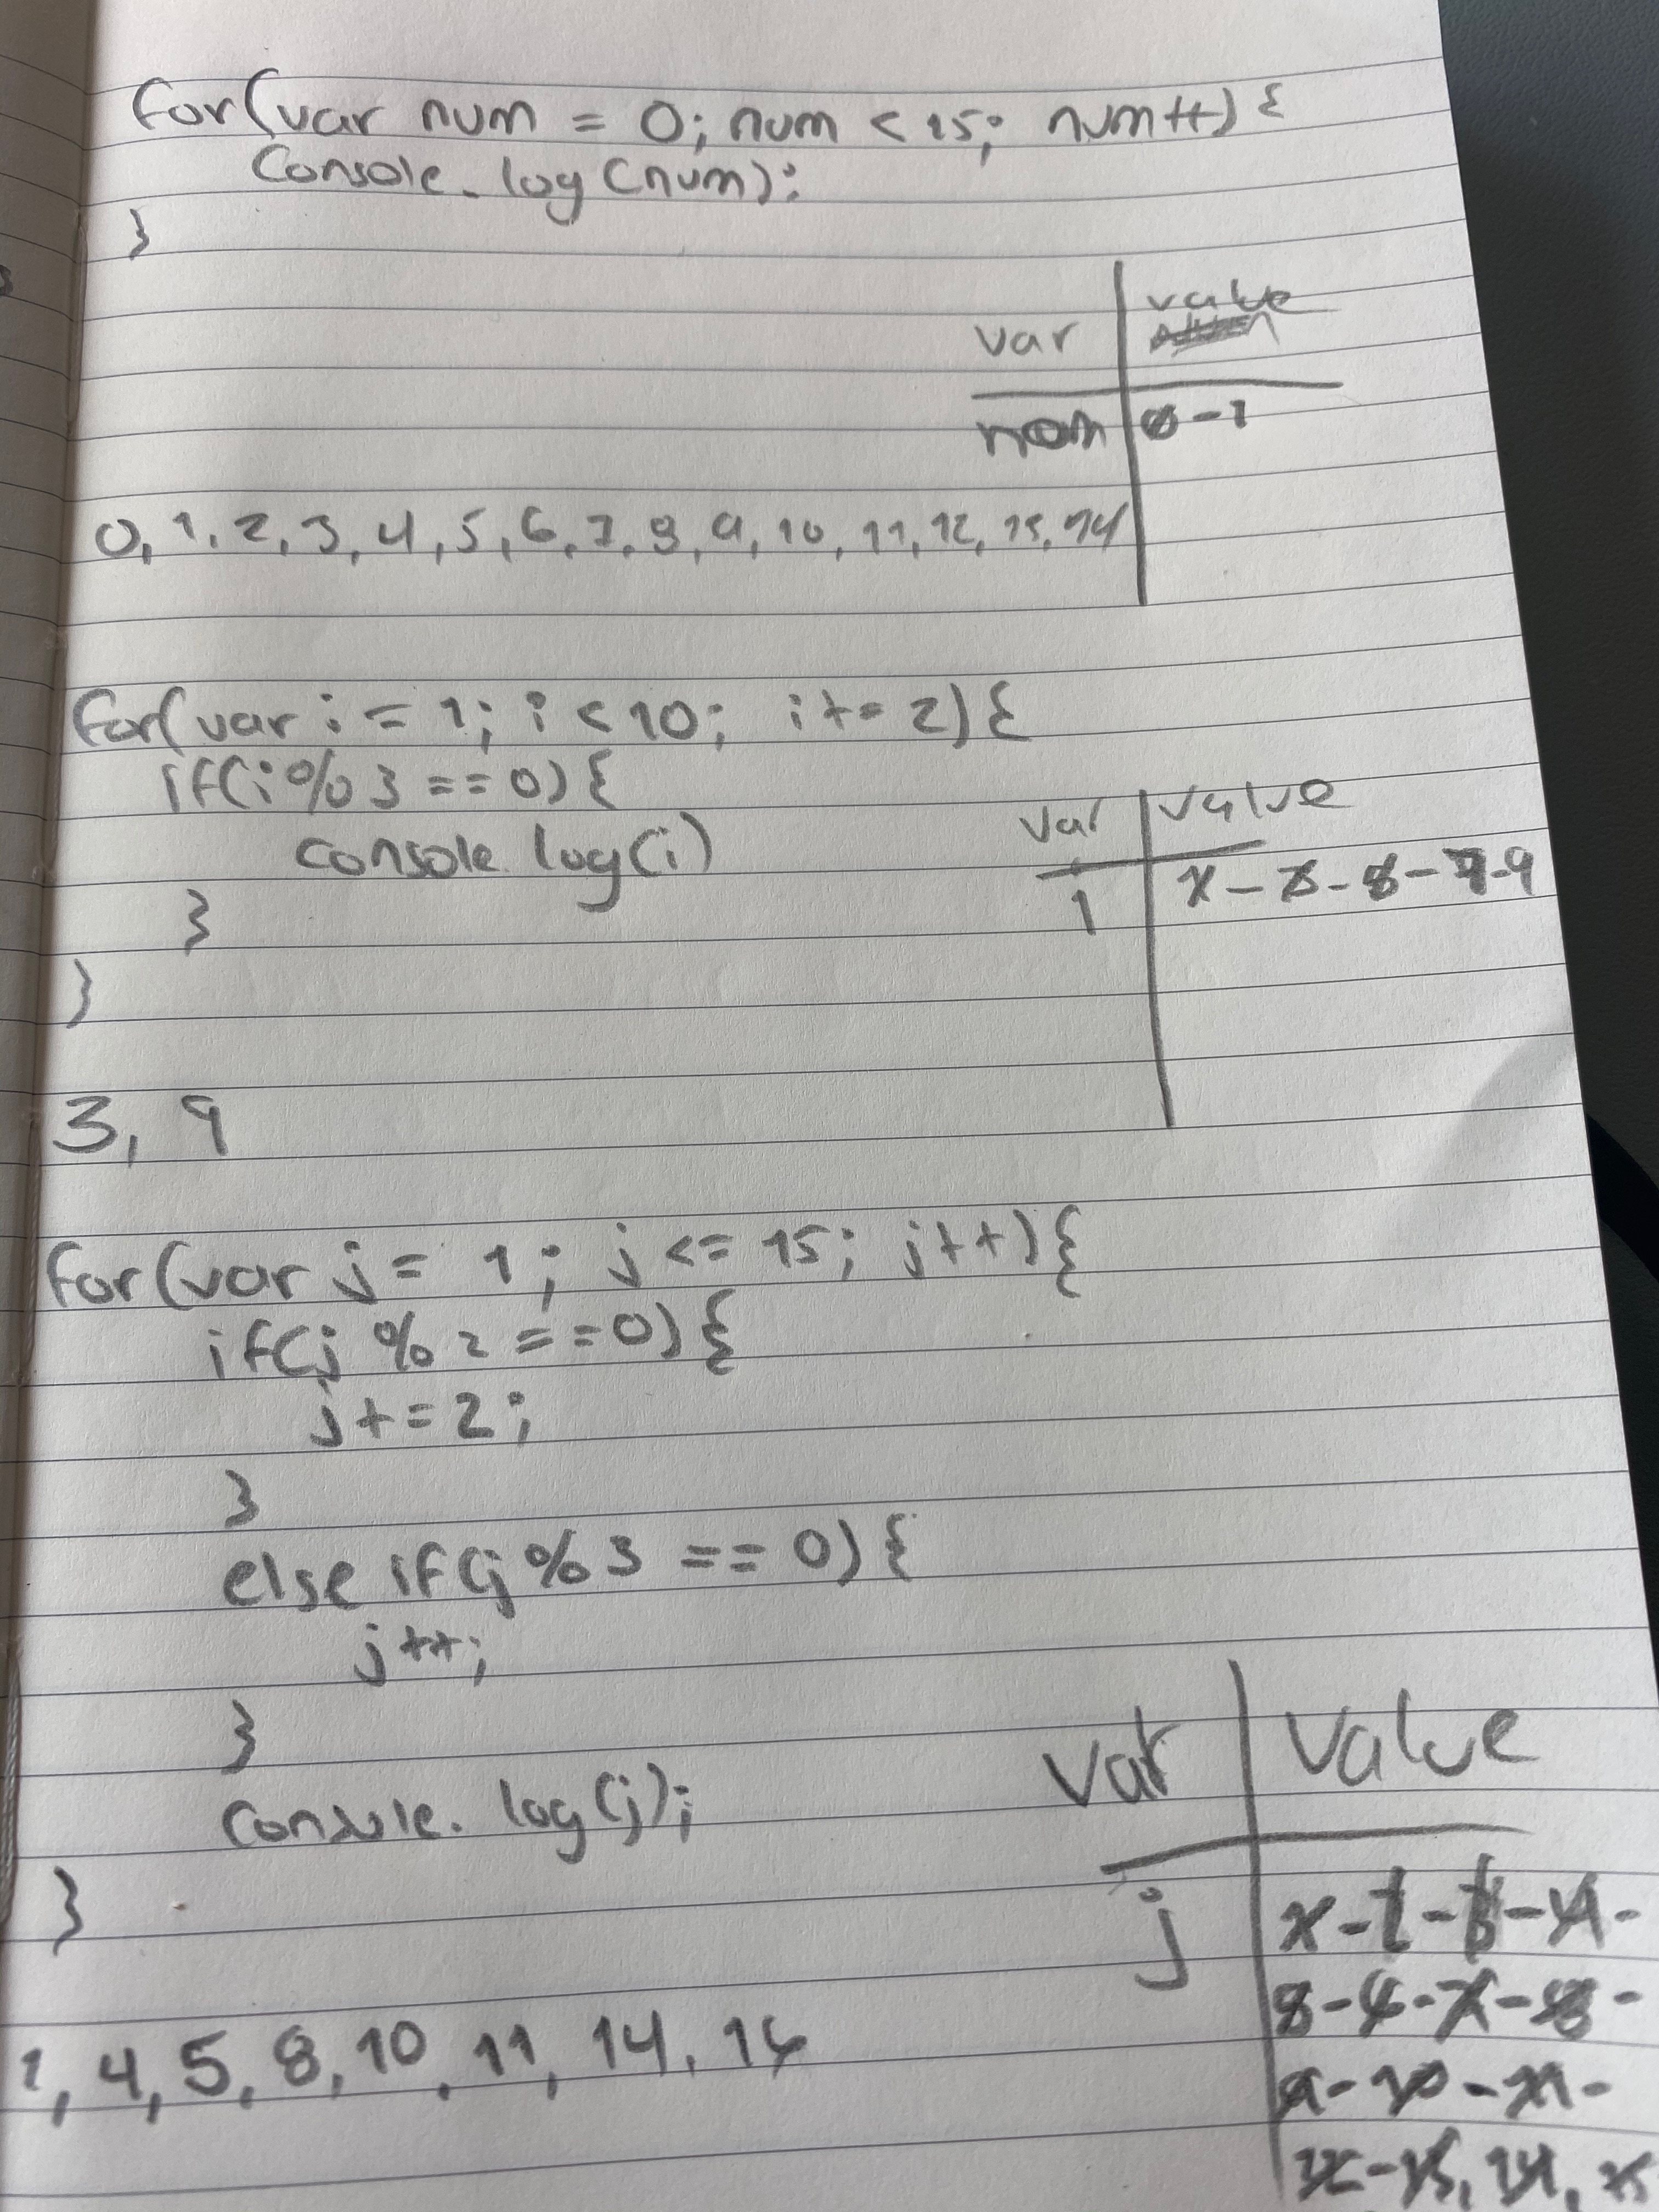 for(var num = 0; num < 15; num++) {
Console.log(num);
}
var | value
num | 0-1
0, 1, 2, 3, 4, 5, 6, 7, 8, 9, 10, 11, 12, 13, 14
for(var i = 1; i < 10; i += 2){
if(i%3 == 0){
console.log(i)
}
}
var | value
i | 1-3-5-7-9
3, 9
for(var j = 1; j <= 15; j++){
if(j % 2 == 0){
j += 2;
}
else if(j%3 == 0){
j++;
}
console.log(j);
}
var | value
j | 1-2-3-4-
5-6-7-8-
9-10-11-
12-13, 14, 15
1, 4, 5, 8, 10, 11, 14, 16